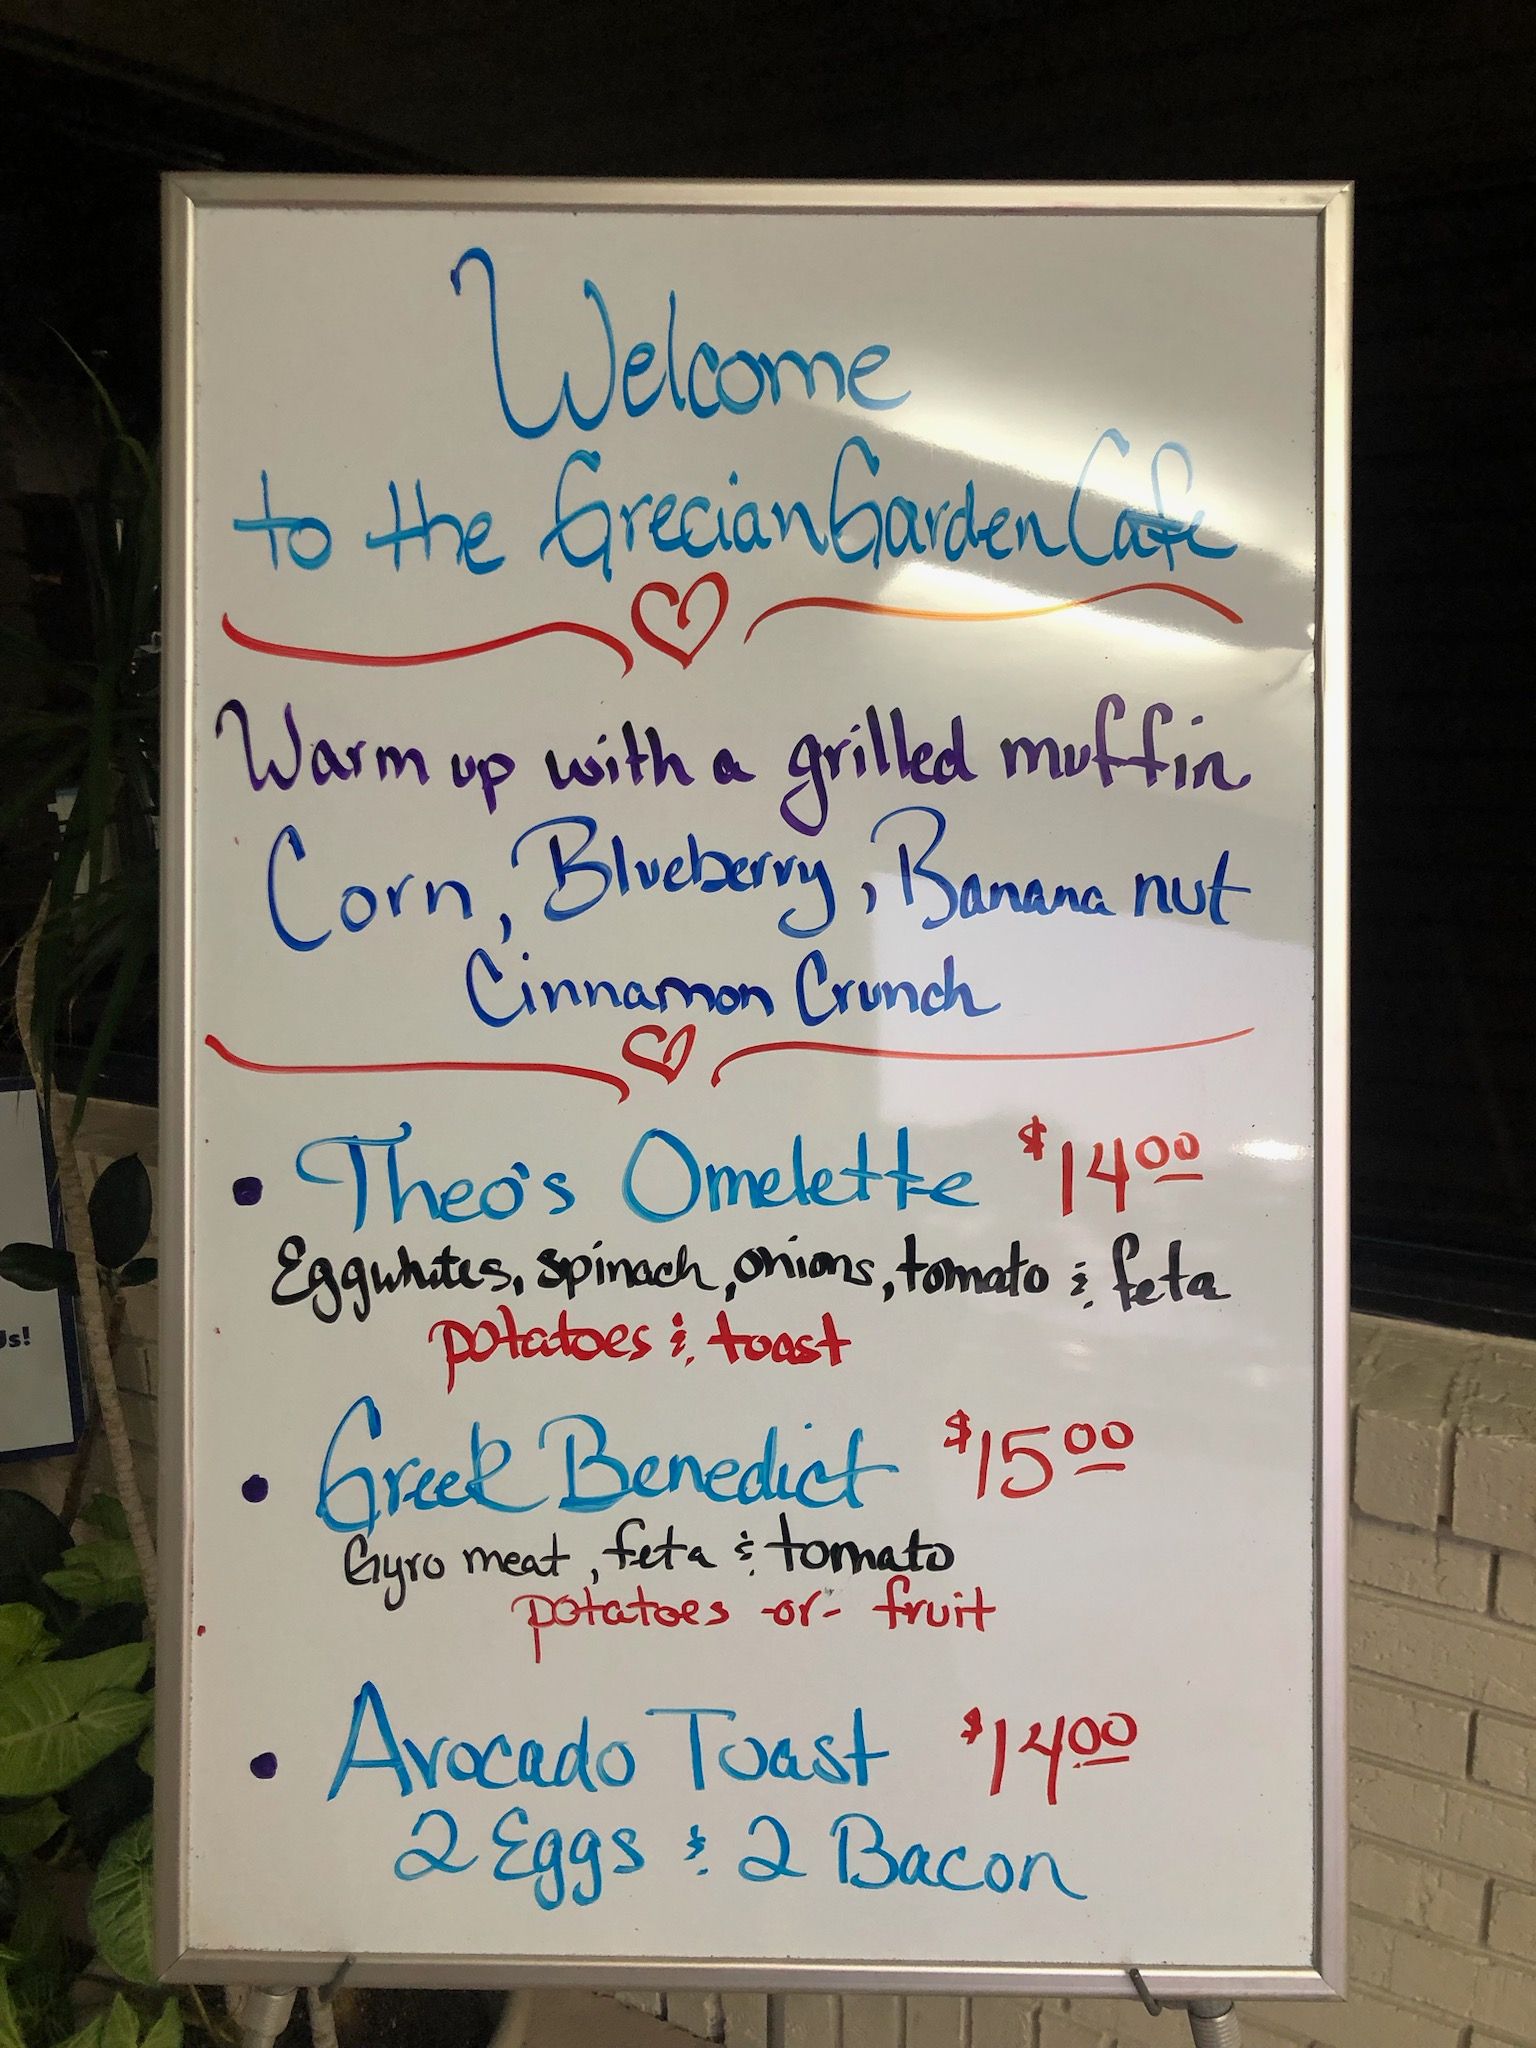 Welcome
to the Grecian Garden Cafe
Warm up with a grilled muffin
Corn, Blueberry, Banana nut
Cinnamon Crunch
• Theo's Omelette $14.00
Eggwhites, spinach, onions, tomato & feta
potatoes & toast
• Greek Benedict $15.00
Gyro meat, feta & tomato
potatoes -or- fruit
• Avocado Toast $14.00
2 Eggs & 2 Bacon
Us!